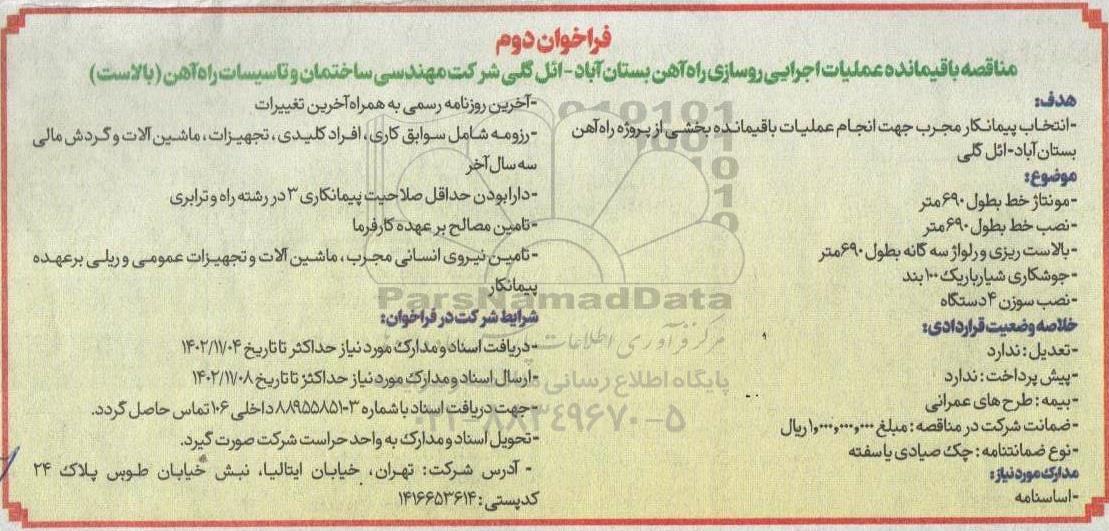 فراخوان دوم
مناقصه باقیمانده عملیات اجرایی روسازی راه آهن بستان آباد - ائل گلی شرکت مهندسی ساختمان و تاسیسات راه آهن (بالاست)
هدف:
-انتخاب پیمانکار مجرب جهت انجام عملیات باقیمانده بخشی از پروژه راه آهن
بستان آباد- ائل گلی
موضوع:
-مونتاژ خط بطول ۶۹۰ متر
-نصب خط بطول ۶۹۰ متر
-بالاست ریزی و رلواژ سه گانه بطول ۶۹۰ متر
-جوشکاری شیارباریک ۱۰۰ بند
-نصب سوزن ۴ دستگاه
خلاصه وضعیت قراردادی:
-تعدیل: ندارد
-پیش پرداخت: ندارد
-بیمه: طرح های عمرانی
-ضمانت شرکت در مناقصه: مبلغ ۱,۰۰۰,۰۰۰,۰۰۰ ریال
-نوع ضمانتنامه: چک صیادی یا سفته
مدارک مورد نیاز:
-اساسنامه
-آخرین روزنامه رسمی به همراه آخرین تغییرات
-رزومه شامل سوابق کاری، افراد کلیدی، تجهیزات، ماشین آلات و گردش مالی
سه سال آخر
-دارا بودن حداقل صلاحیت پیمانکاری ۳ در رشته راه و ترابری
-تامین مصالح بر عهده کارفرما
-تامین نیروی انسانی مجرب، ماشین آلات و تجهیزات عمومی و ریلی برعهده
پیمانکار
شرایط شرکت در فراخوان:
-دریافت اسناد و مدارک مورد نیاز حداکثر تا تاریخ ۱۴۰۲/۱۱/۰۴
-ارسال اسناد و مدارک مورد نیاز حداکثر تا تاریخ ۱۴۰۲/۱۱/۰۸
-جهت دریافت اسناد با شماره ۳-۸۸۹۵۵۸۵۱ داخلی ۱۰۶ تماس حاصل گردد.
-تحویل اسناد و مدارک به واحد حراست شرکت صورت گیرد.
- آدرس شرکت: تهران، خیابان ایتالیا، نبش خیابان طوس پلاک ۲۴
کدپستی: ۱۴۱۶۶۵۳۶۱۴
ParsNamadData
مرکز فرآوری اطلاعات
پایگاه اطلاع رسانی
۰۲۱-۸۸۳۴۹۶۷۰-۵